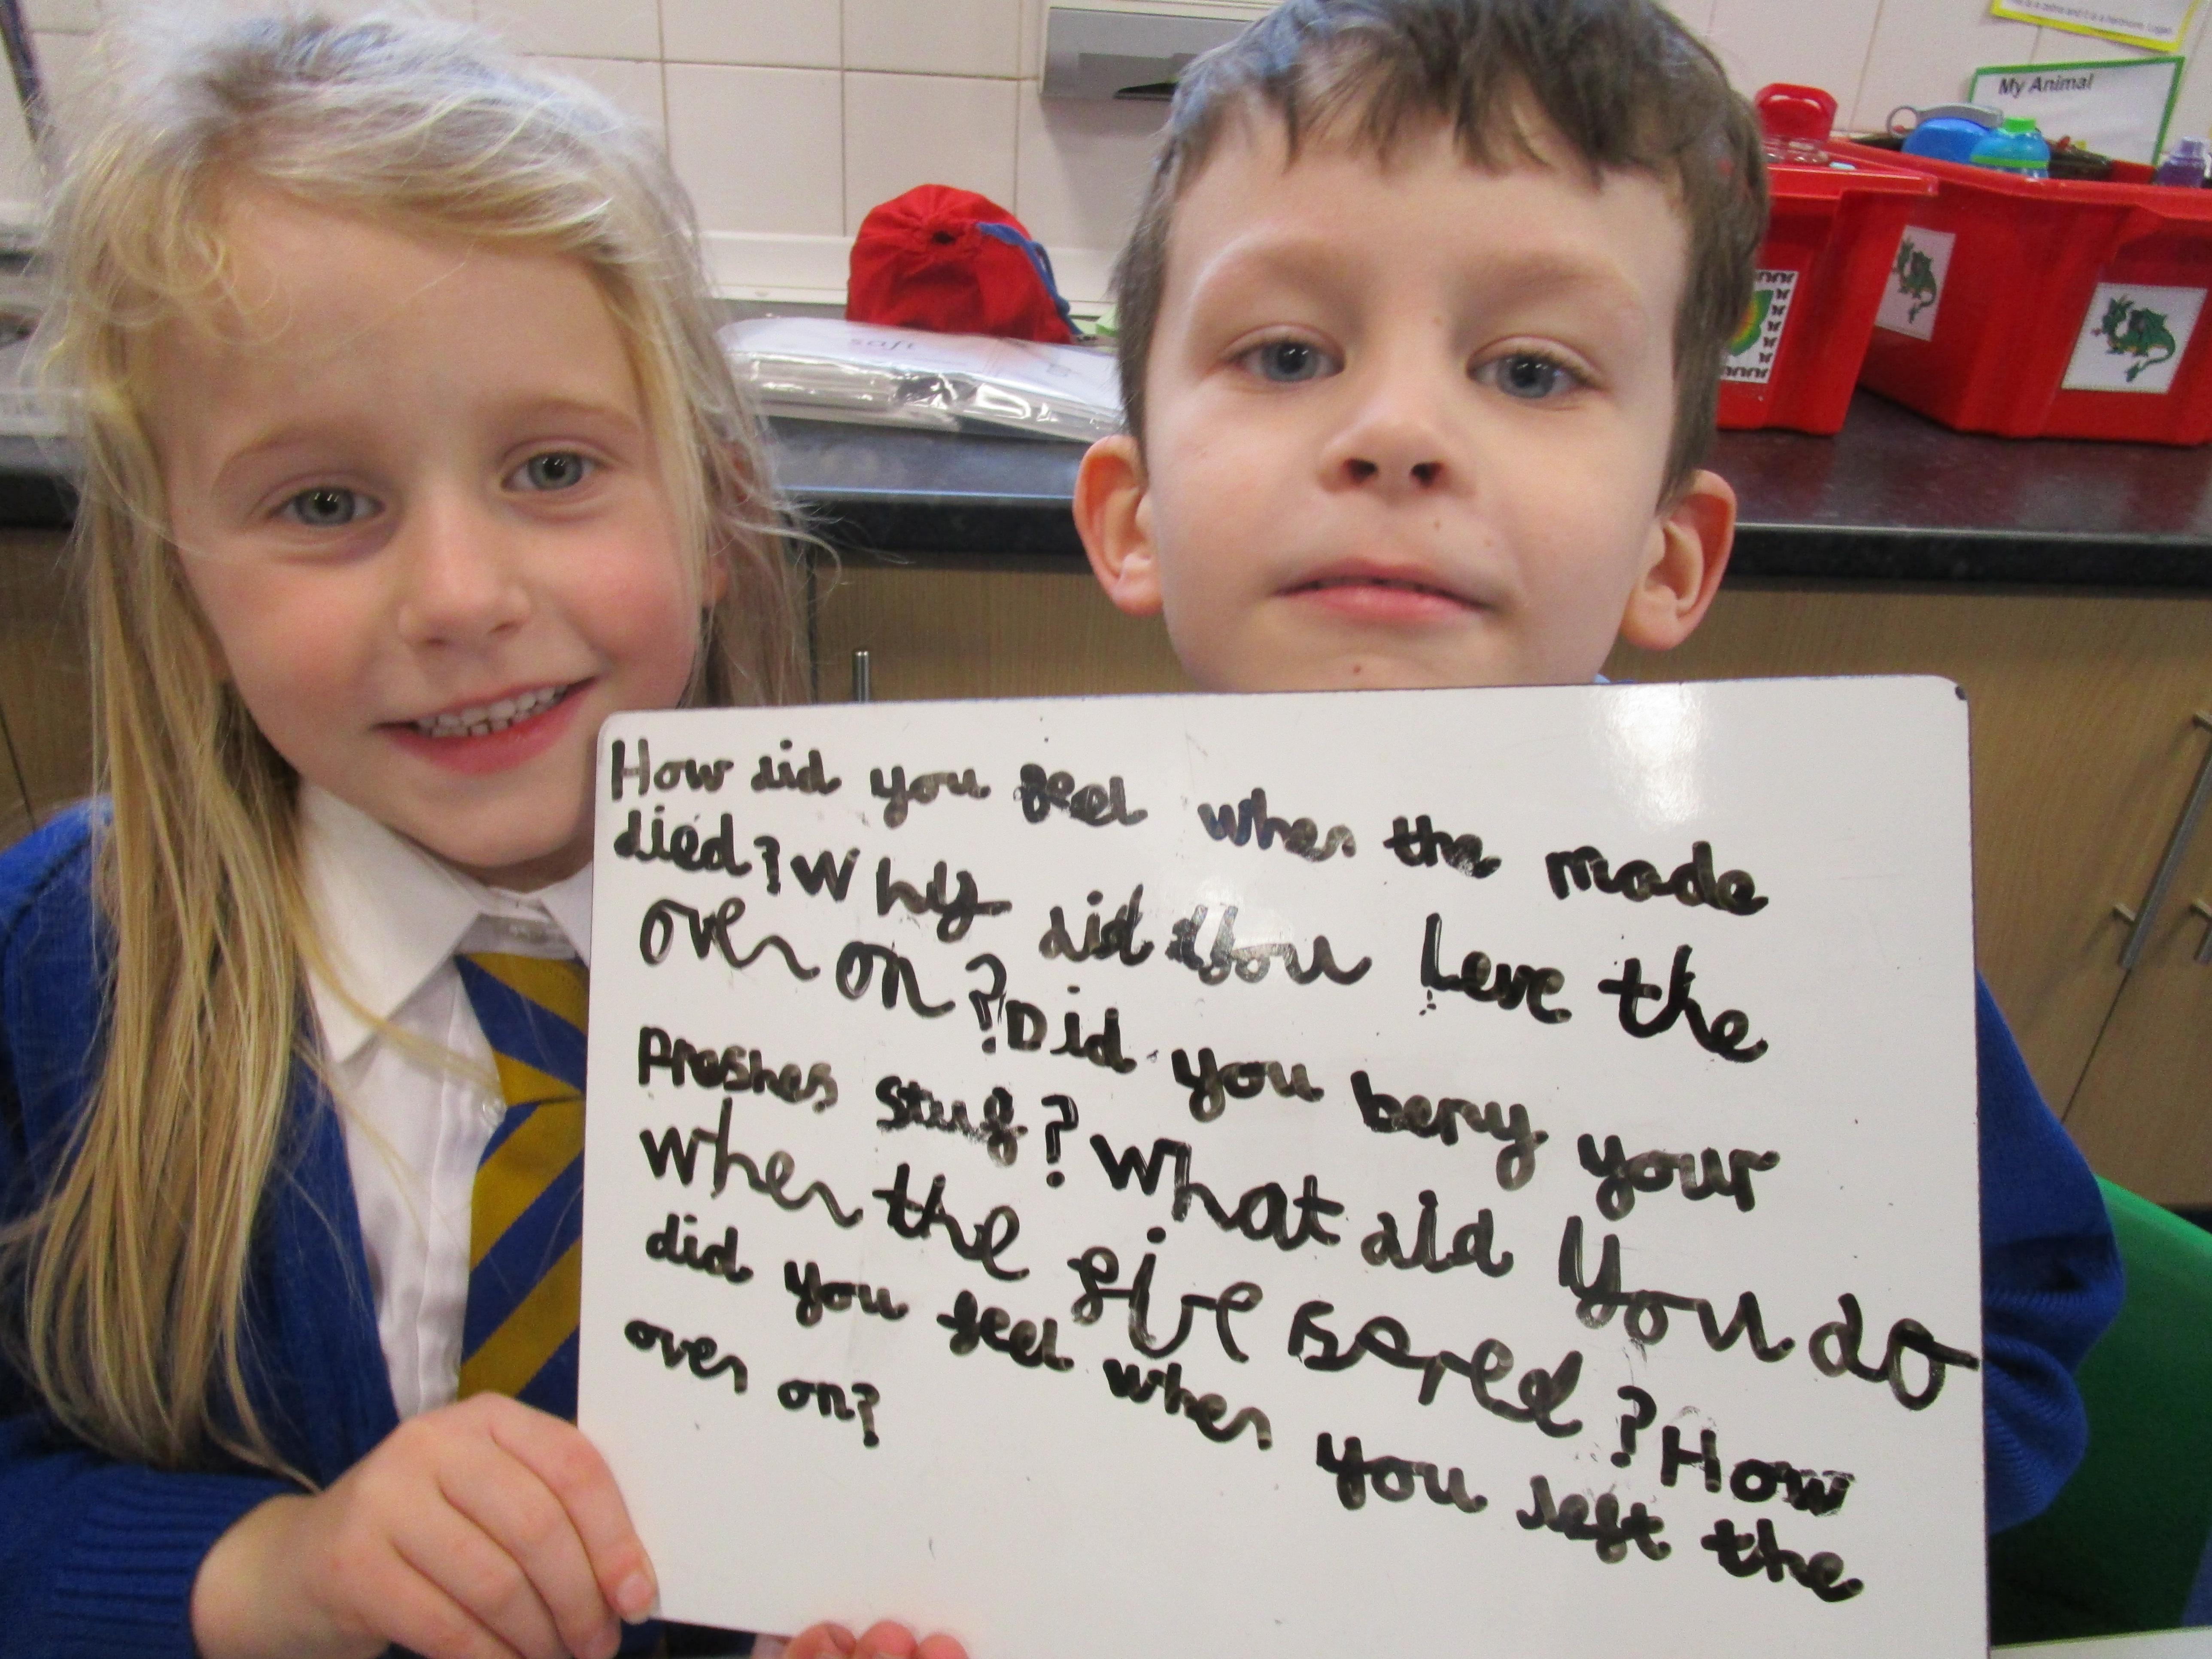 My Animal
soft
How did you feel when the made
died? Why did you Leve the
oven on? Did you bery your
Preshes stuf? What did you do
when the five sared? How
did you feel when you left the
oven on?